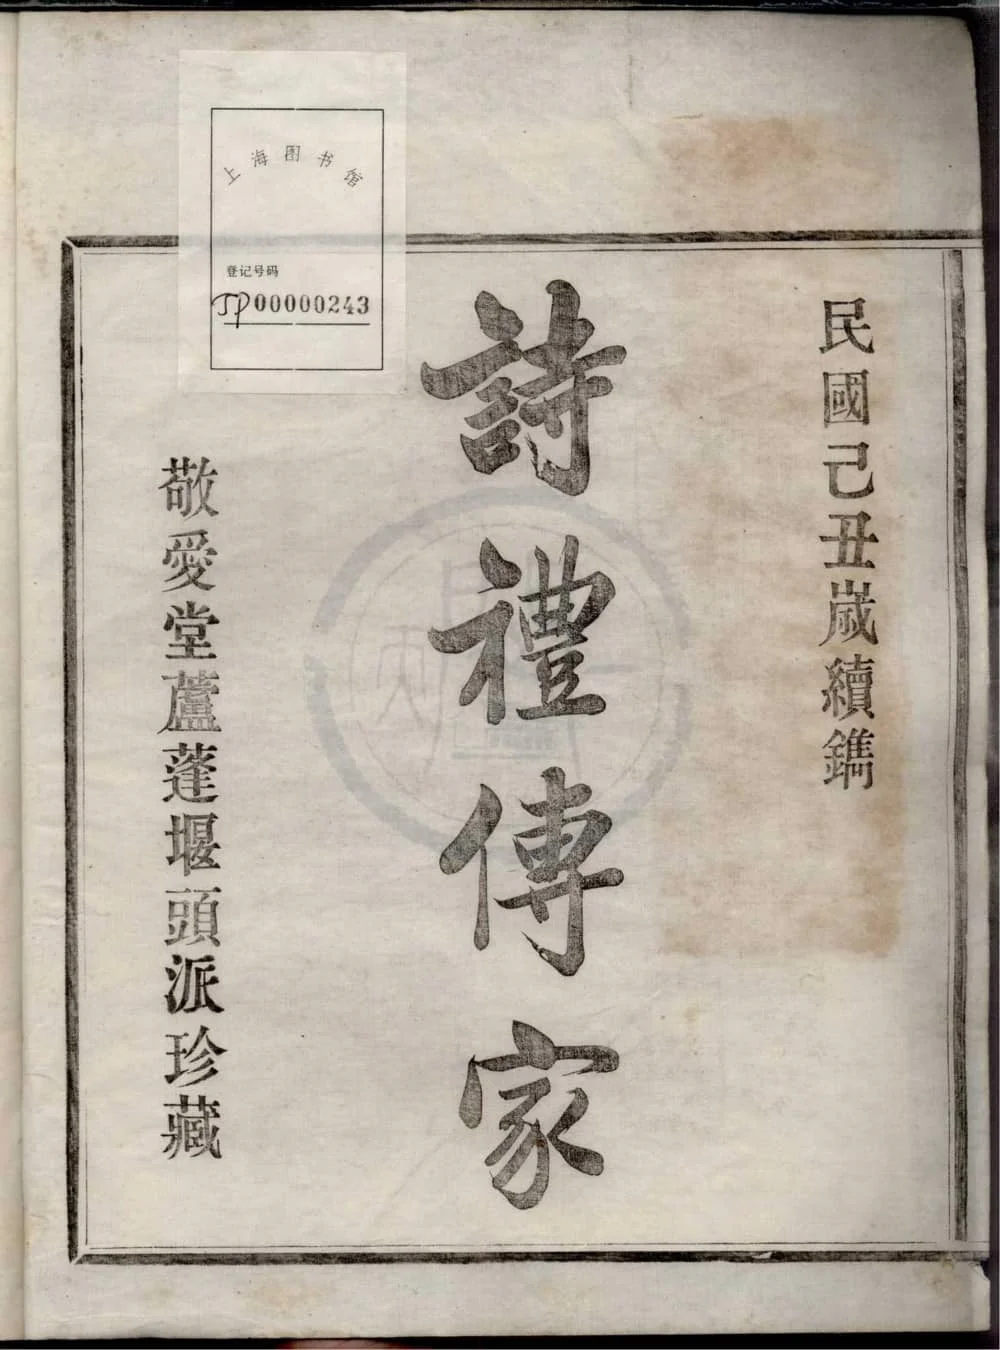 民國己丑歲續鐫
詩禮傳家
敬愛堂蘆蓬堰頭派珍藏
上海图书馆
登记号码
JP00000243